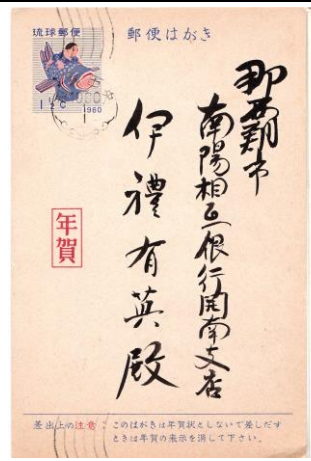 琉球郵便
1½C
1960
郵便はがき
那覇市
南陽相互銀行開南支店
伊禮有英殿
年賀
差出上の注意:このはがきは年賀状としないで差しだす
ときは年賀の表示を消して下さい。